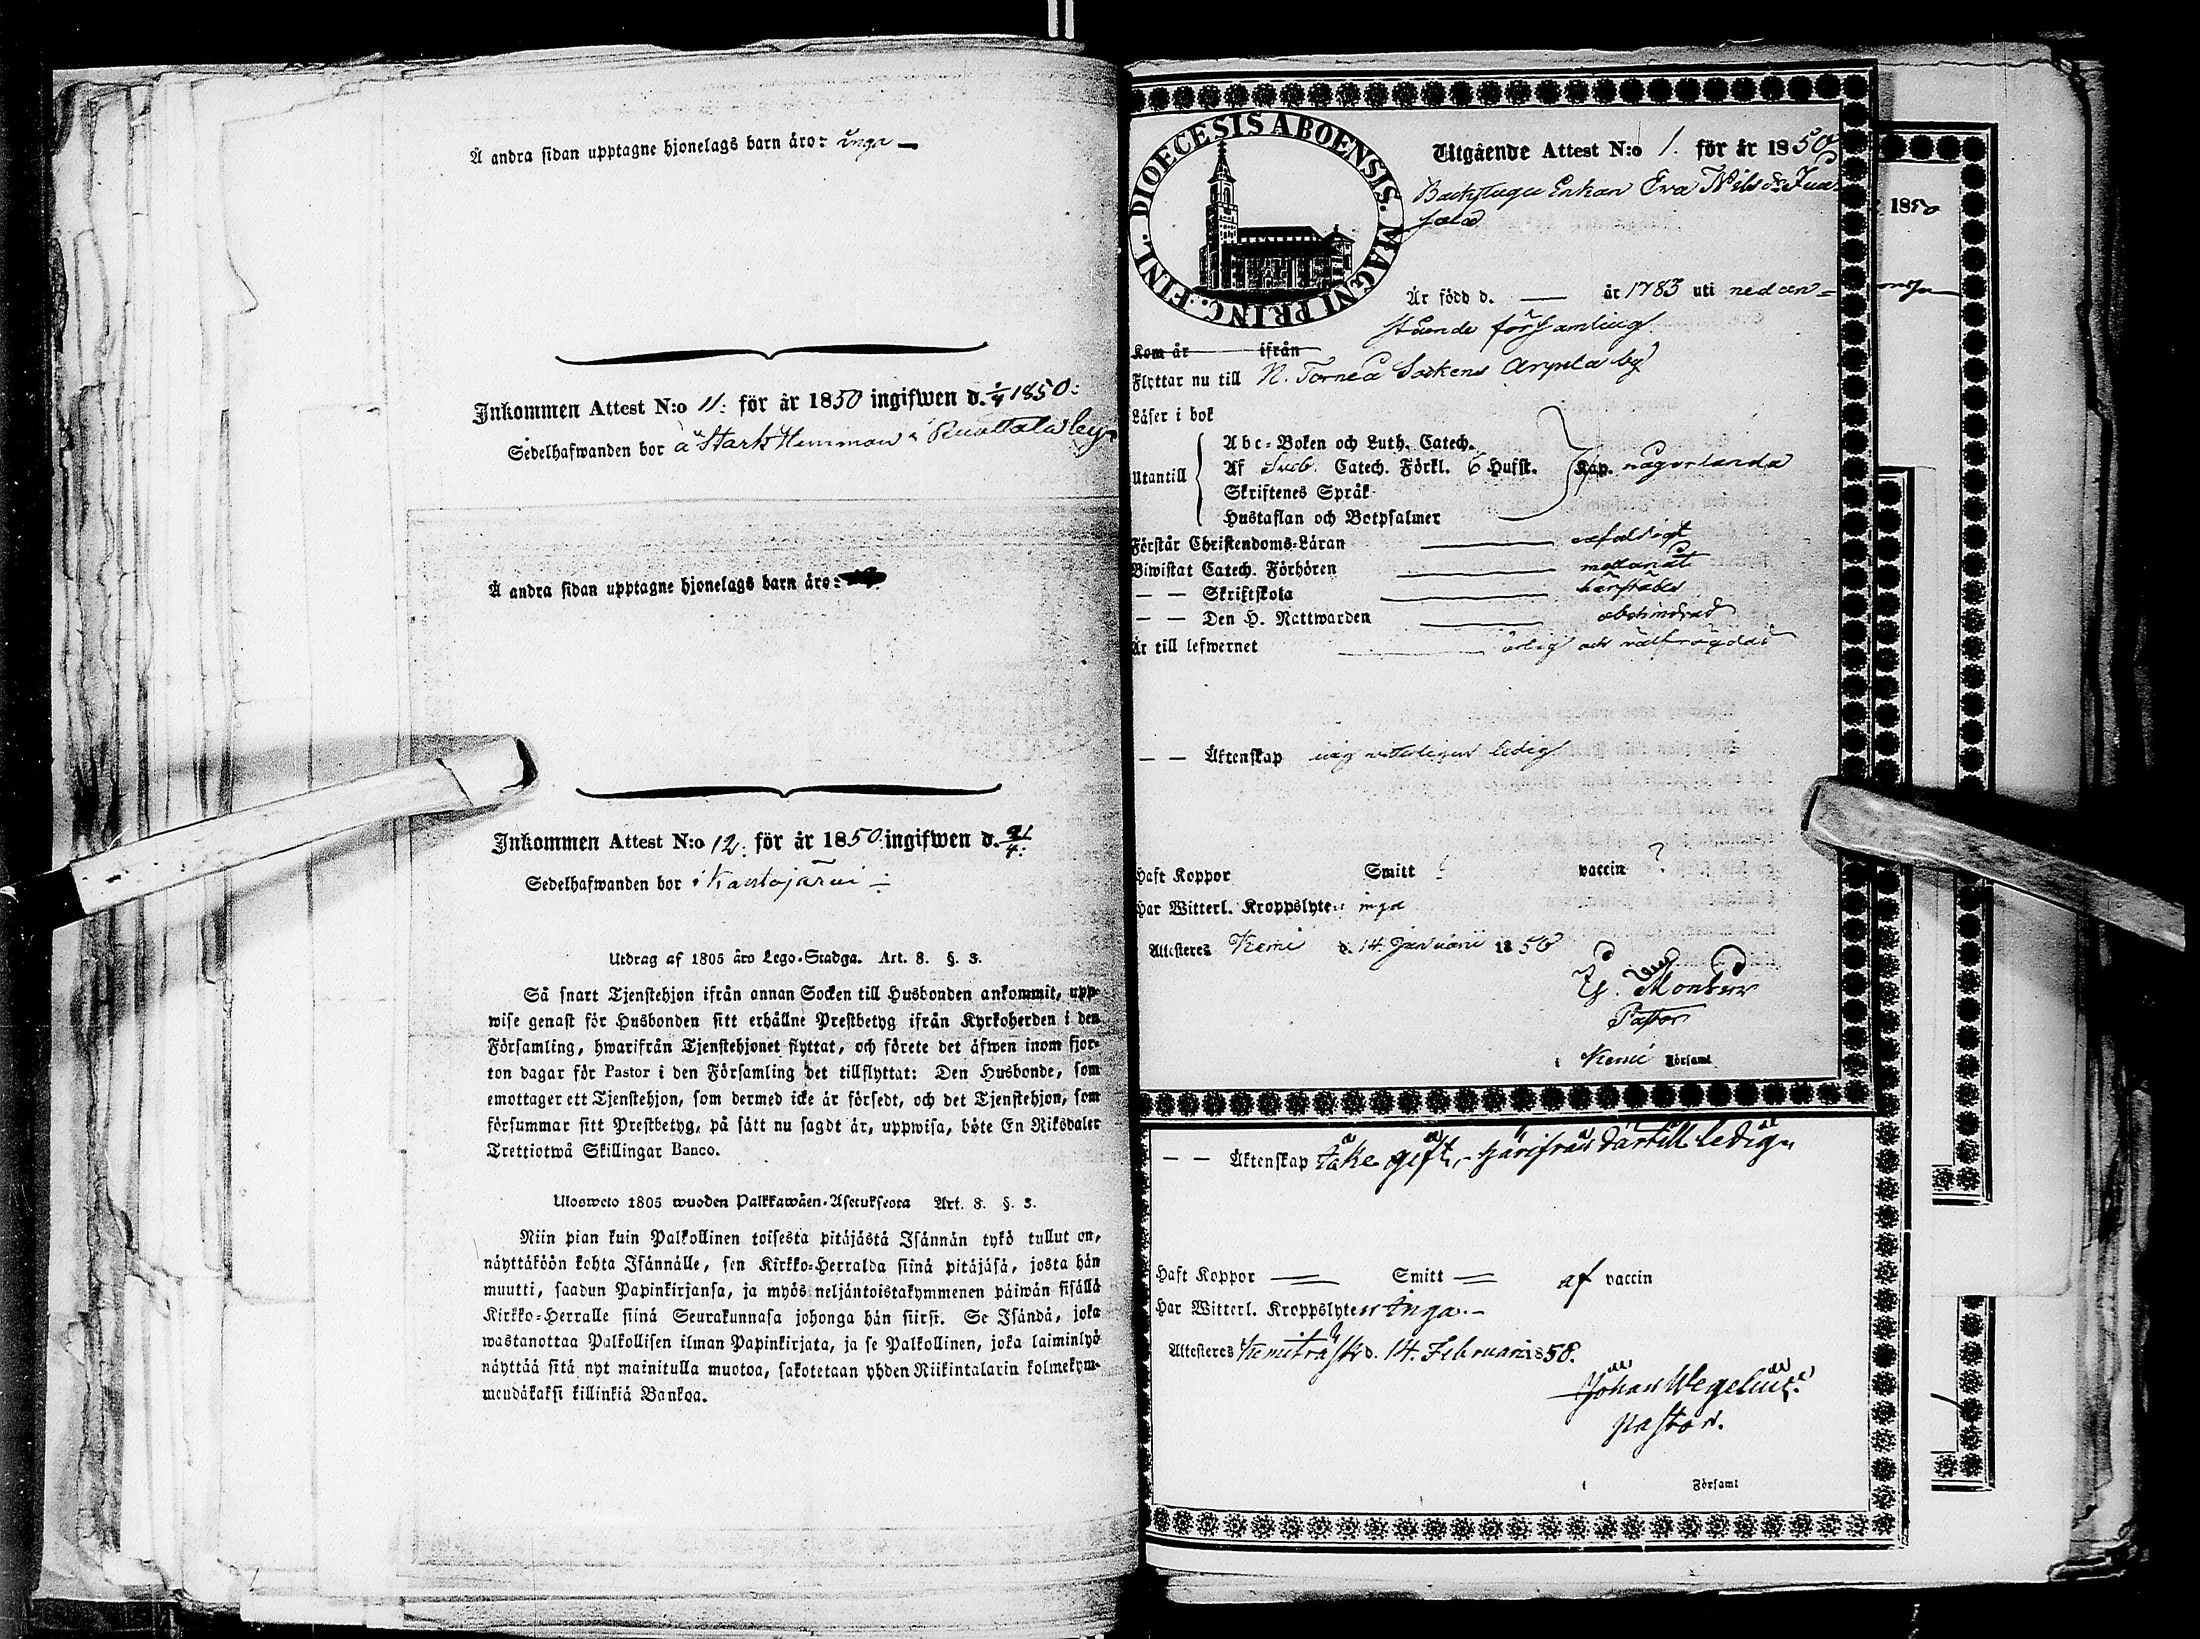 Å andra sidan upptagne hjonelags barn äro: inga —
Inkommen Attest N:o 11: för år 1850 ingifwen d. 1850:
Sedelhafwanden bor å Stark Hemman i Ruottala by
Å andra sidan upptagne hjonelags barn äro:
Inkommen Attest N:o 12. för år 1850. ingifwen d. 21/4.
Sedelhafwanden bor i Kantojärvi
Utdrag af 1805 års Lego-Stadga. Art. 8. §. 3.
Så snart Tjenstehjon ifrån annan Socken till Husbonden ankommit, upp-
wise genast för Husbonden sitt erhållne Prestbetyg ifrån Kyrkoherden i den
Församling, hwarifrån Tjenstehjonet flyttat, och förete det äfwen inom fjor-
ton dagar för Pastor i den Församling det tillflyttat: Den Husbonde, som
emottager ett Tjenstehjon, som dermed icke är försedt, och det Tjenstehjon, som
försummar sitt Prestbetyg, på sätt nu sagdt är, uppwisa, böte En Riksdaler
Trettiotwå Skillingar Banco.
Ulosweto 1805 wuoden Palkkawäen-Asetuksesta Art. 8. §. 3.
Niin pian kuin Palkollinen toisesta pitäjästä Isännän tykö tullut on,
näyttäköön kohta Isännälle, sen Kirkko-Herralda siinä pitäjäsä, josta hän
muutti, saadun Papinkirjansa, ja myös neljäntoistakymmenen päiwän sisällä
Kirkko-Herralle siinä Seurakunnasa johonga hän siirsi. Se Isändä, joka
wastanottaa Palkollisen ilman Papinkirjata, ja se Palkollinen, joka laiminlyö
näyttää sitä nyt mainitulla muotoa, sakotetaan yhden Riikintalarin kolmekym-
mendäkaksi killinkiä Bankoa.
DIOECESIS ABOENSIS. MAGNI PRINC. FINL.
Utgående Attest N:o 1. för år 1850
Backstugu Enkan Eva Nils dr
Är född d. — år 1783 uti nedan=
stående församling
Kom år ifrån
Flyttar nu till N. Torneå Sockens Arpela by
Läser i bok
Utantill
Abc-Boken och Luth. Catech.
Af Sveb. Catech. Förkl. 6 Hufst. Kap. någorlunda
Skriftenes Språk
Hustaflan och Botpsalmer
Förstår Christendoms-Läran
Biwistat Catech. Förhören
— — Skriftskola
— — Den H. Nattwarden obehindrad
Är till lefwernet ärlig och välfrägdad
— — Äktenskap ledig
Haft Koppor Smitt vaccin ?
Har Witterl. Kroppslyten inga
Attesteres Kemi d. 14 Januari 1850
Pastor
i Kemi Församl
1850
— — Äktenskap icke gift, härifrån dertill ledig.
Haft Koppor — Smitt — af vaccin
Har Witterl. Kroppslyten Inga. —
Attesteres Kemiträsk d. 14. Februari 1850.
Johan Wegelius
pastor.
i Församl